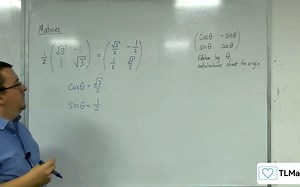 Matrices
1/2 (√3 -1
1 √3) = (√3/2 -1/2
1/2 √3/2)
cosθ = √3/2
sinθ = 1/2
(cosθ -sinθ
sinθ cosθ)
Rotation by θ
anticlockwise about the origin
TLMa